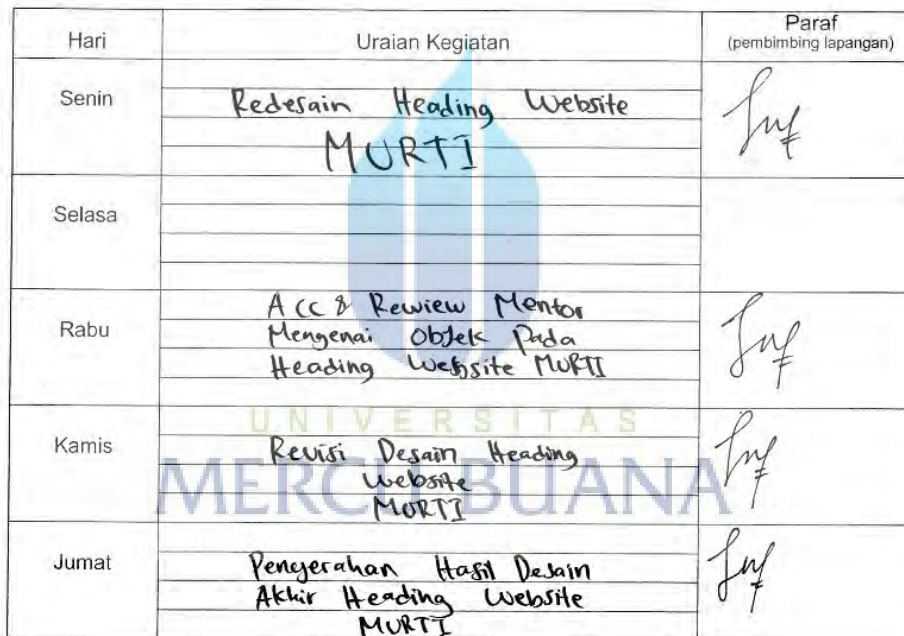 Hari
Uraian Kegiatan
Paraf
(pembimbing lapangan)
Senin
Redesain Heading Website
MURTI
Selasa
Rabu
Acc & Rewiew Mentor
Mengenai Objek Pada
Heading Website MURTI
UNIVERSITAS
MERCU BUANA
Kamis
Revisi Desain Heading
Website
MURTI
Jumat
Penyerahan Hasil Desain
Akhir Heading Website
MURTI